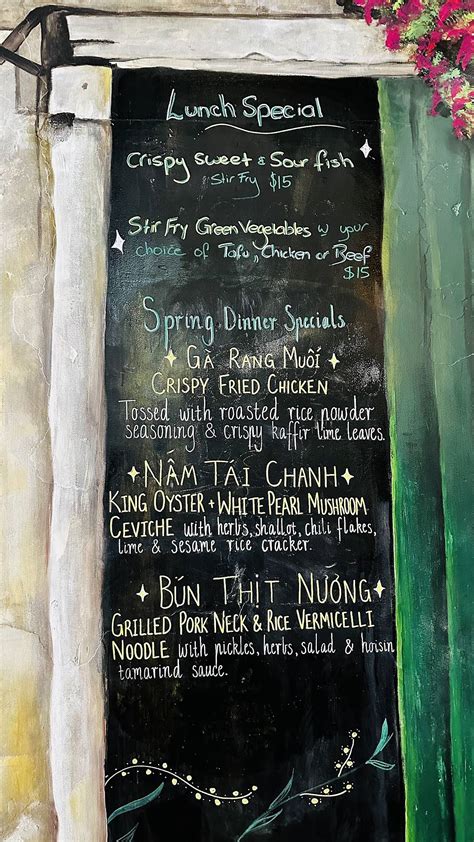 Lunch Special
Crispy Sweet & Sour fish
Stir Fry $15
Stir Fry Green Vegetables w your
choice of Tofu, Chicken or Beef
$15
Spring Dinner Specials
GÀ RANG MUỐI
CRISPY FRIED CHICKEN
Tossed with roasted rice powder
seasoning & crispy kaffir lime leaves.
NẤM TÁI CHANH
KING OYSTER + WHITE PEARL MUSHROOM
CEVICHE with herbs, shallot, chili flakes,
lime & sesame rice cracker.
BÚN THỊT NƯỚNG
GRILLED PORK NECK & RICE VERMICELLI
NOODLE with pickles, herbs, salad & hoisin
tamarind sauce.